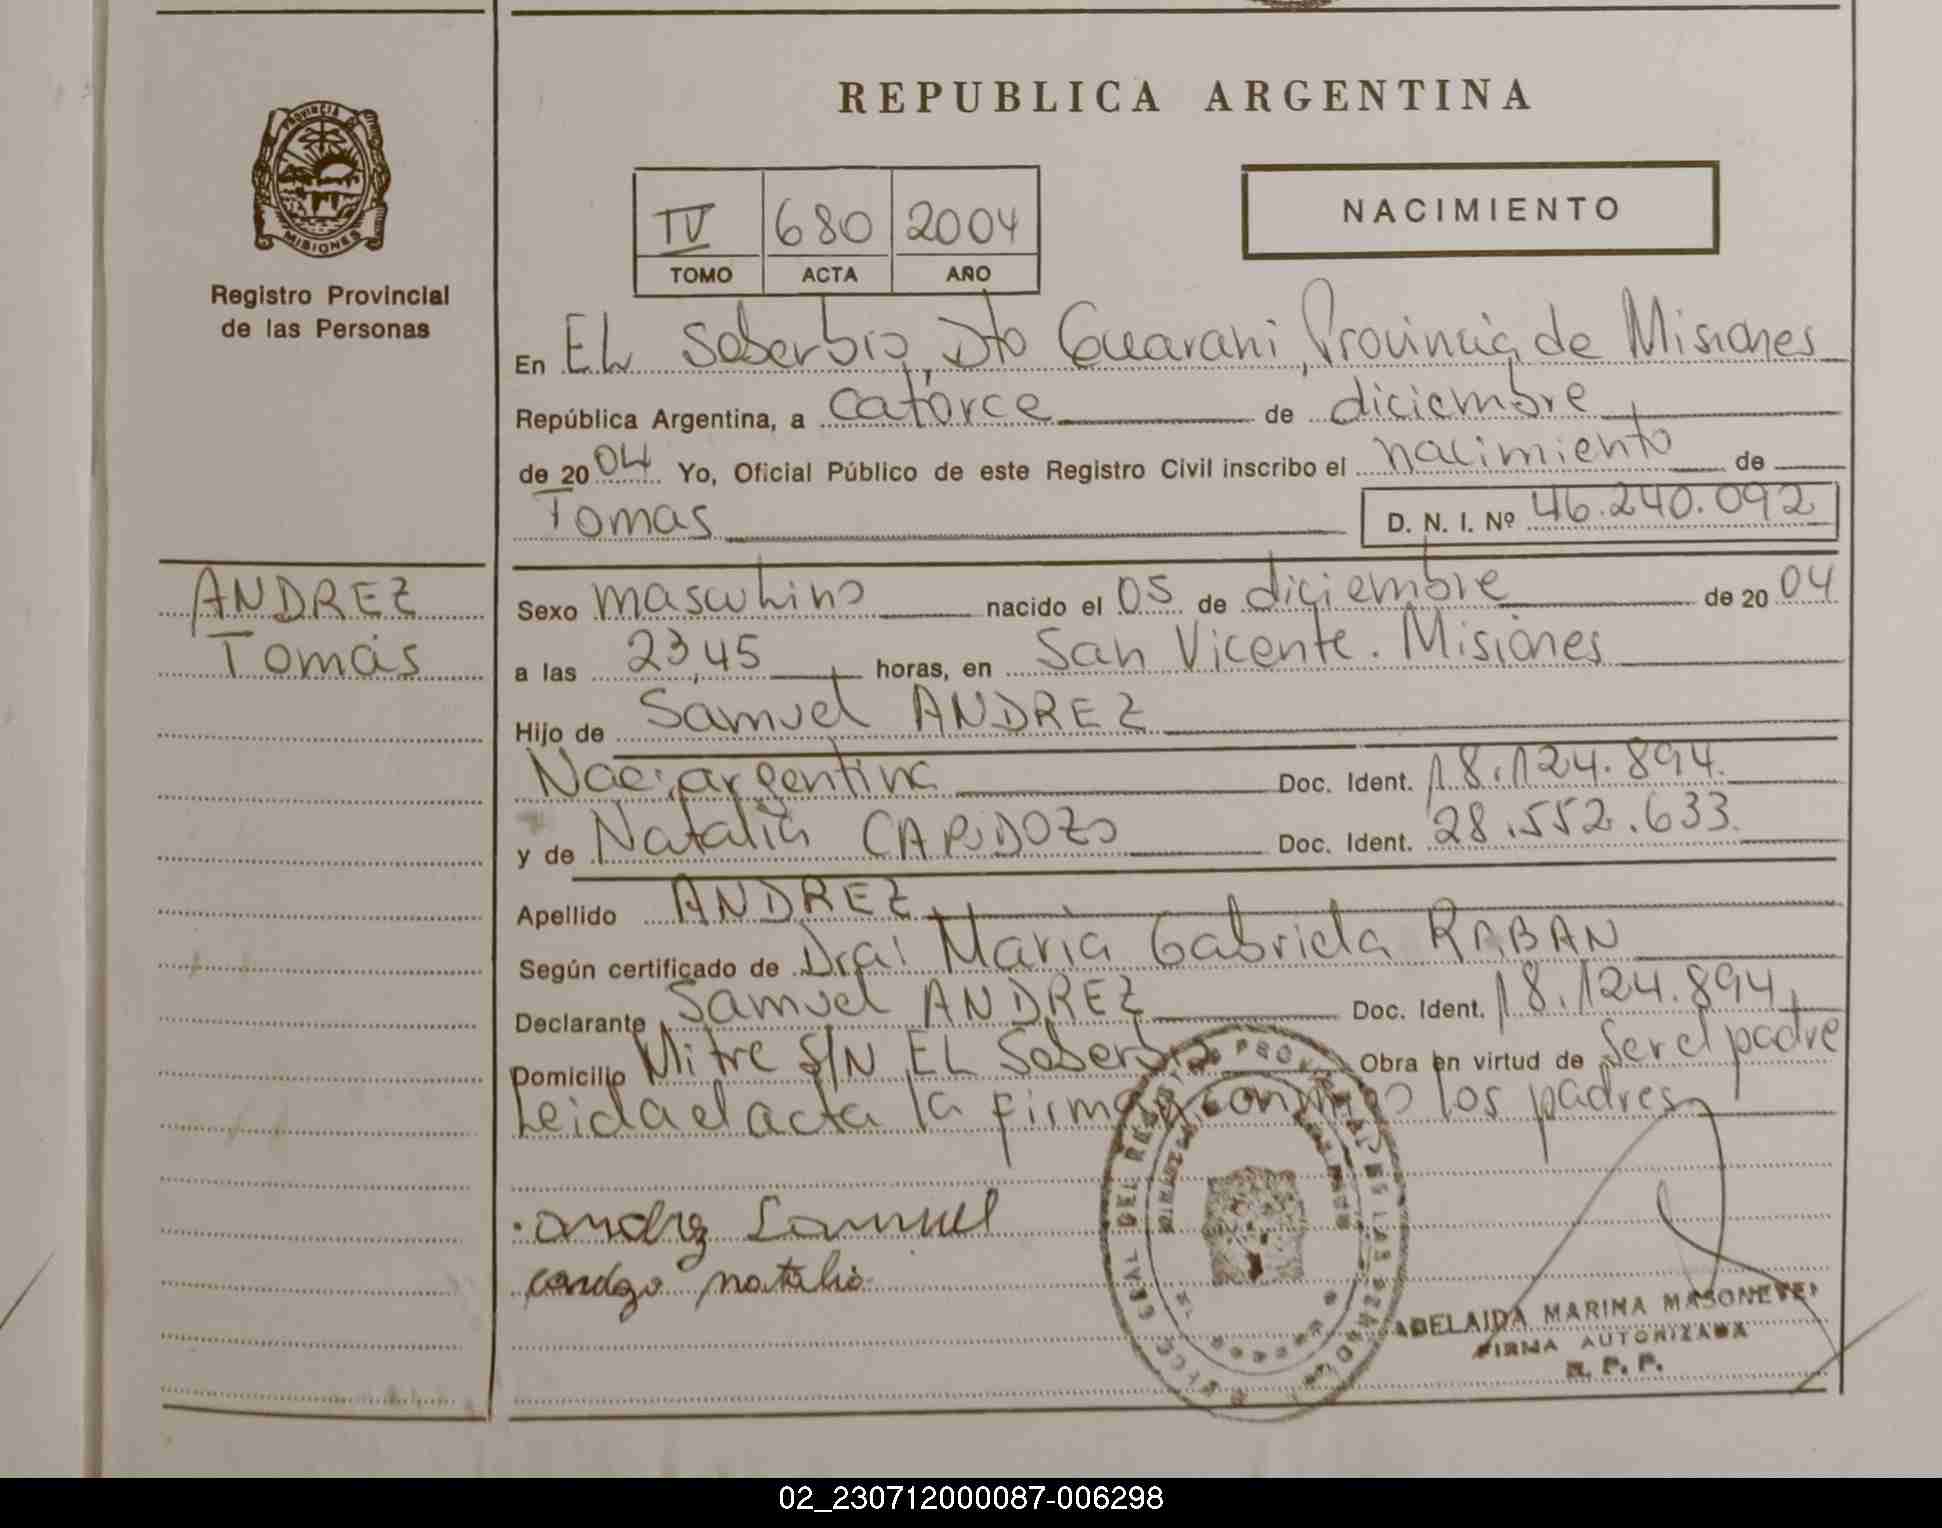 REPUBLICA ARGENTINA
PROVINCIA DE
MISIONES
Registro Provincial
de las Personas
IV 680 2004
TOMO ACTA AÑO
NACIMIENTO
En EL Soberbio, Dto Guarani, Provincia de Misiones
República Argentina, a catorce de diciembre
de 2004 Yo, Oficial Público de este Registro Civil inscribo el nacimiento de
Tomas D. N. I. Nº 46.240.092
ANDREZ
Tomás
Sexo masculino nacido el 05 de diciembre de 2004
a las 23,45 horas, en San Vicente. Misiones
Hijo de Samuel ANDREZ
Nac: argentina Doc. Ident. 18.124.894.
y de Natalia CARDOZO Doc. Ident. 28.552.633.
Apellido ANDREZ
Según certificado de Dra: Maria Gabriela RABAN
Declarante Samuel ANDREZ Doc. Ident. 18.124.894
Domicilio Mitre S/N EL Soberbio Obra en virtud de ser el padre
Leida el acta la firman conmigo los padres
andrez Samuel
cardozo natalia
ADELAIDA MARINA
FIRMA AUTORIZADA
R. P. P.
02_230712000087-006298